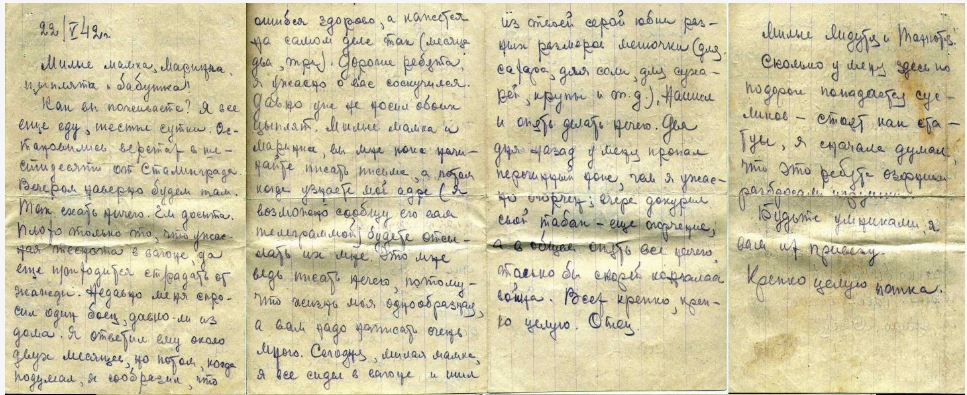 22/V 42 г.
Милые мамка, Маринка,
цыплята и бабушка!
Как вы поживаете? Я все
еще еду, шестые сутки. Ос-
тановились верстах в ше-
стидесяти от Сталинграда.
Вечером наверно будем там.
Там есть нечего. Ем досыта.
Плохо только то, что ужас-
ная теснота в вагоне, да
еще приходится страдать от
жажды. Недавно меня спро-
сил один боец, давно-ли из
дома. Я ответил ему около
двух месяцев, но потом, когда
подумал, я сообразил, что
ошибся здорово, а кажется
на самом деле так (месяца
два, три). Дорогие ребята!
я ужасно о вас соскучился.
Давно уже не носил своих
цыплят. Милые мамка и
Маринка, вы мне пока начи-
найте писать письма, а потом
когда узнаете мой адрес (я
возможно сообщу его вам
телеграммой) будете отсы-
лать их мне. Это мне
ведь писать нечего, потому-
что жизнь моя однообразная,
а вам надо написать очень
много. Сегодня, милая мамка,
я все сидел в вагоне и шил
из твоей серой юбки раз-
ных размеров мешочки (для
сахара, для соли, для суха-
рей, крупы и т.д.). Нашил
и опять делать нечего. Два
дня назад у меня пропал
перочинный нож, чем я ужас-
но огорчен; вчера докурил
свой табак – еще огорчение,
а в общем опять все ничего
только бы скорей кончалась
война. Всех крепко, креп-
ко целую. Отец
Милые Лидута и Танюта!
Сколько у меня здесь по
дороге попадается сус-
ликов – стоят как ста-
туи, я сначала думал,
что это ребята
разбросали игрушки
Будьте умниками, я
вам их привезу.
Крепко целую папка.